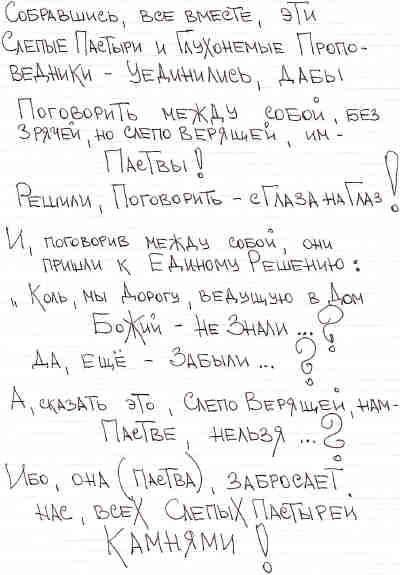 Собравшись, все вместе, эти
Слепые Пастыри и Глухонемые Пропо-
ведники - Уединились, дабы
Поговорить между собой, без
Зрячей, но слепо верящей, им -
Паствы!
Решили, Поговорить - с Глаза на Глаз!
И, поговорив между собой, они
пришли к Единому Решению:
„ Коль, мы Дорогу, ведущую в Дом
Божий - не Знали ...?
Да, ещё - Забыли ...?
А, сказать это, Слепо Верящей, нам-
Пастве, нельзя ...?
Ибо, она (Паства), забросает
нас, всех Слепых Пастырей
Камнями!